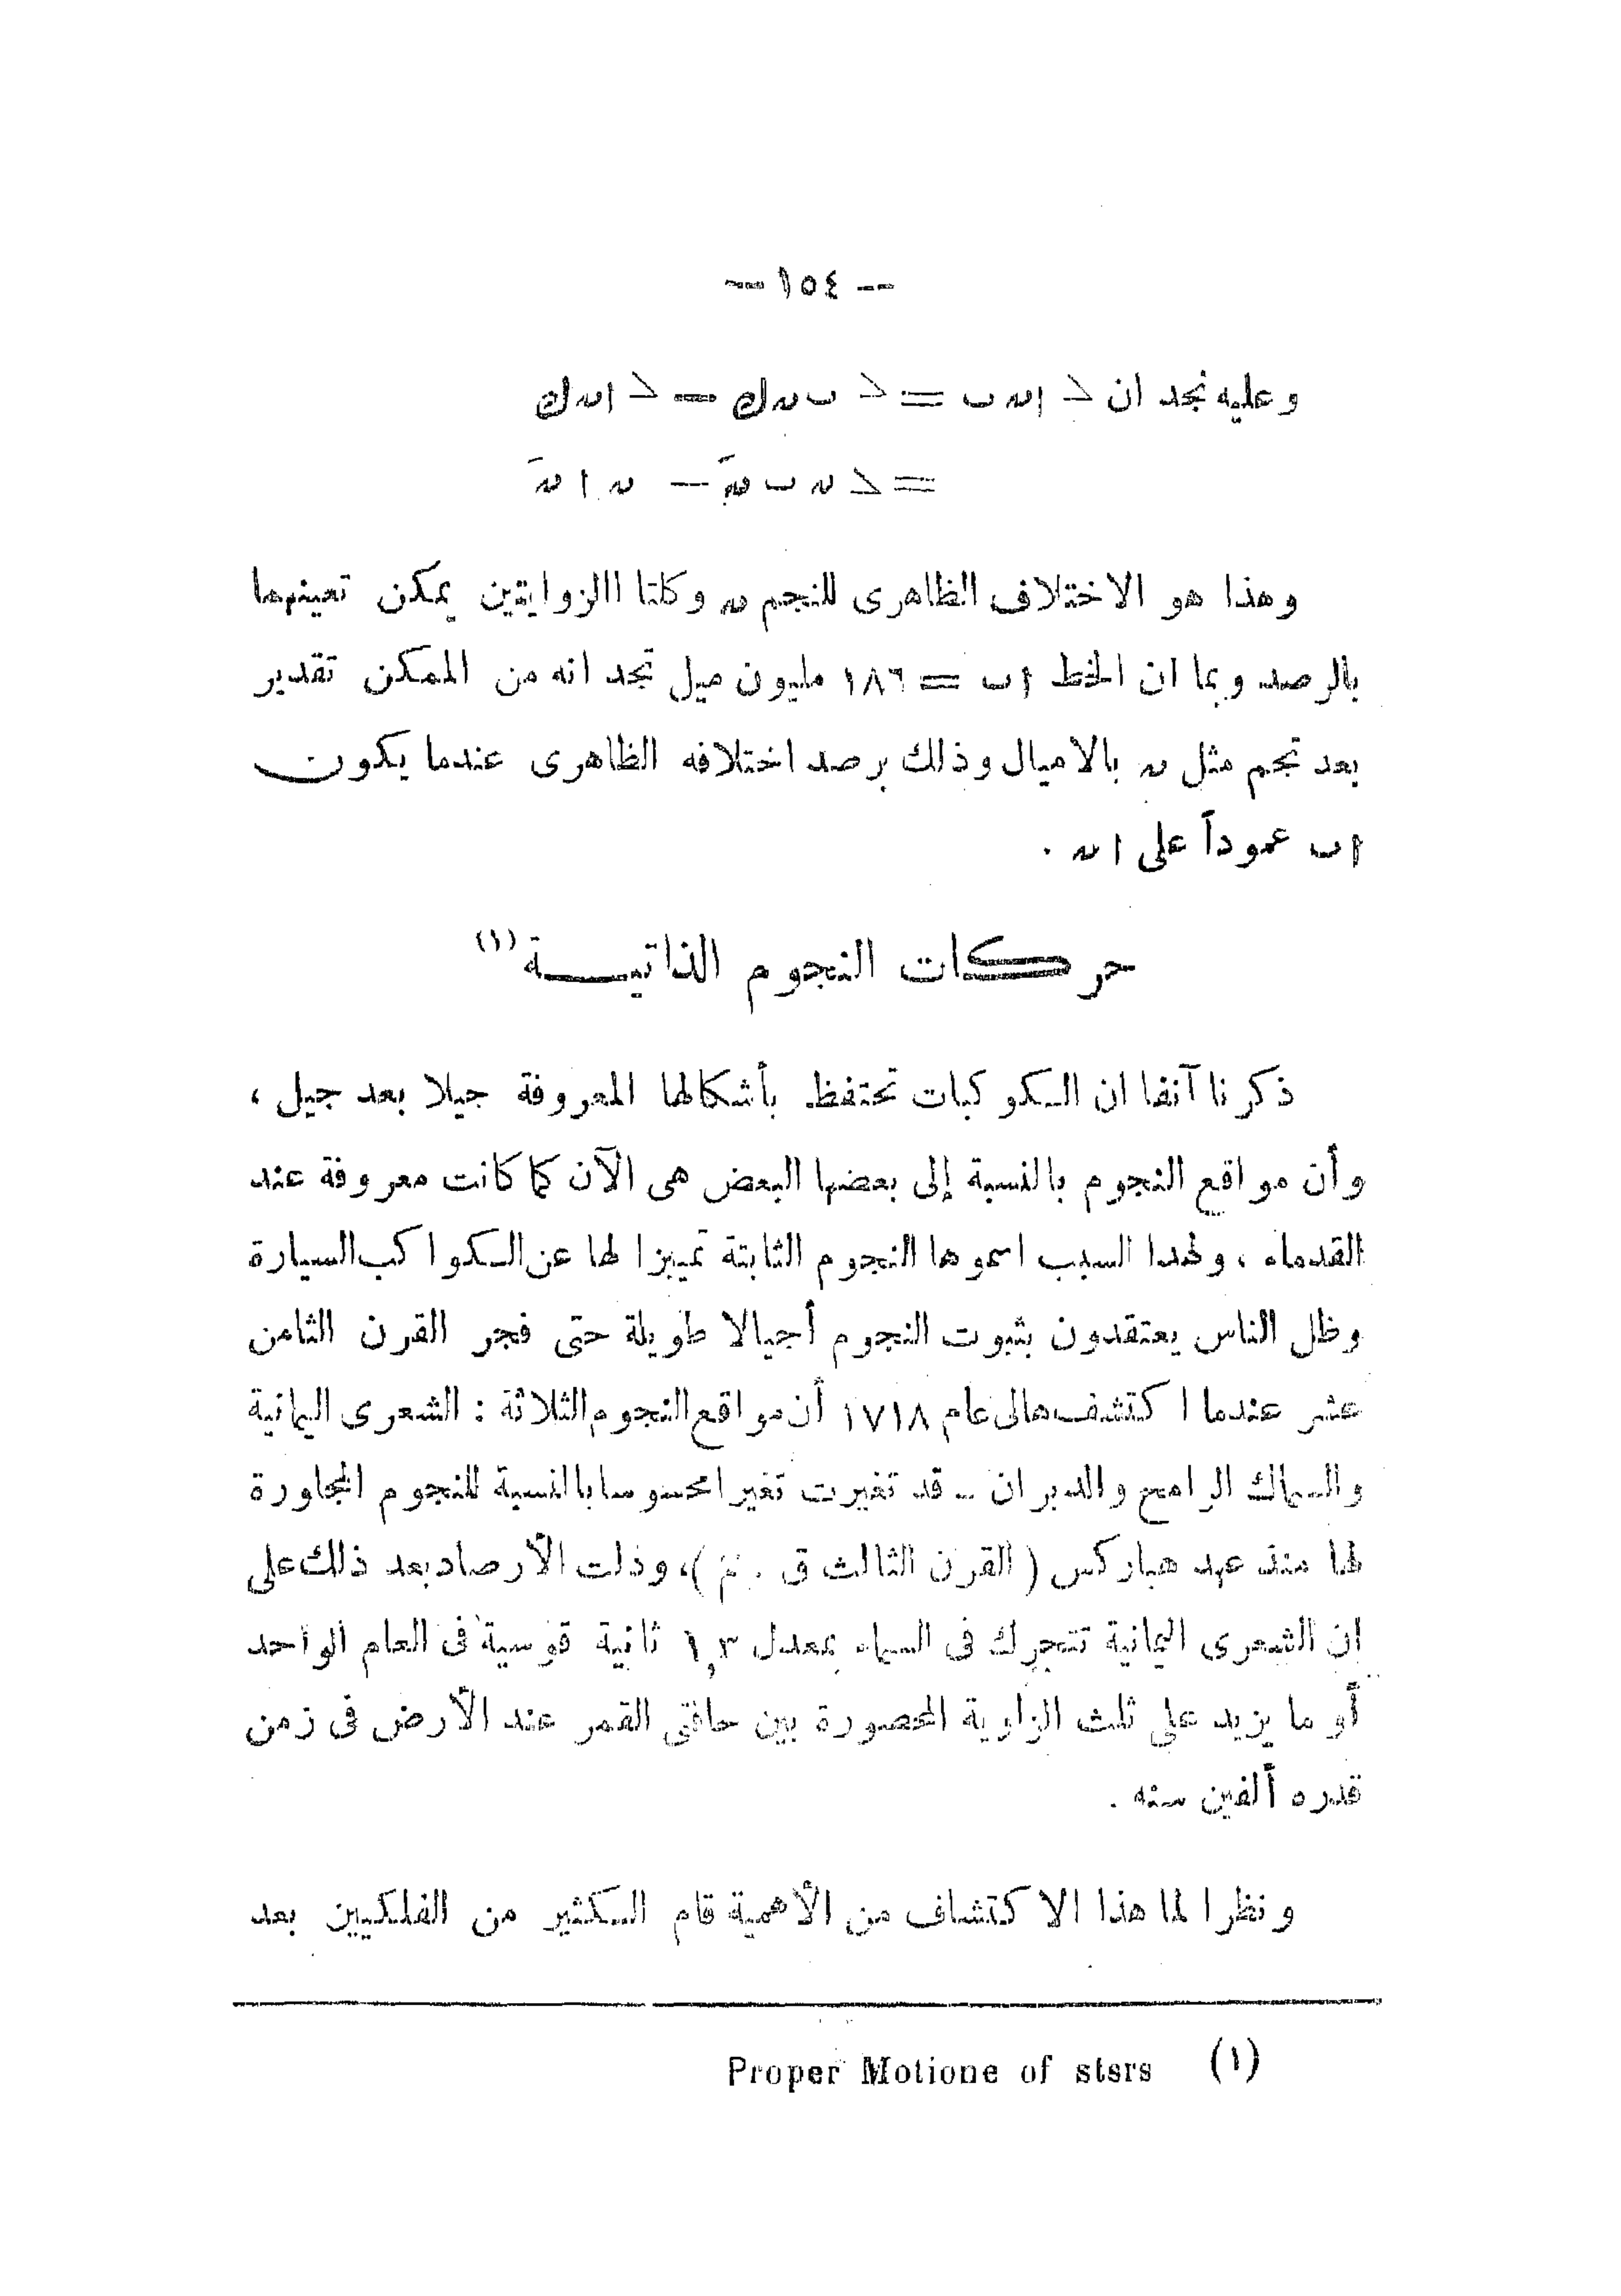 — ١٥٤ —
وعليه نجد ان > ا ں ب = > ب ں ك — > ا ں ك
= > ں ب ںَ — ں ا ںَ
وهذا هو الاختلاف الظاهرى للنجم ں وكلتا االزوايتين يمكن تعيينهما
بالرصد وبما ان الخط ا ب = ١٨٦ مليون ميل نجد انه من الممكن تقدير
بعد نجم مثل ں بالاميال وذلك برصد اختلافه الظاهرى عندما يكون
ا ب عموداً على ا ں .
حركات النجوم الذاتيـــة (١)
ذكرنا آنفا ان الكوكبات تحتفظ بأشكالها المعروفة جيلا بعد جيل ،
وأن مواقع النجوم بالنسبة إلى بعضها البعض هى الآن كما كانت معروفة عند
القدماء ، ولهذا السبب اسموها النجوم الثابتة تمييزا لها عن الكواكب السيارة
وظل الناس يعتقدون بثبوت النجوم أجيالا طويلة حتى فجر القرن الثامن
عشر عندما اكتشف هالى عام ١٧١٨ أن مواقع النجوم الثلاثة : الشعرى اليمانية
والسماك الرامح والدبران – قد تغيرت تغيرا محسوسا بالنسبة للنجوم المجاورة
لها منذ عهد هباركس ( القرن الثالث ق . م )، وذلت الأرصاد بعد ذلك على
ان الشعرى اليمانية تتحرك فى السماء بمعدل ١,٣ ثانية قوسية فى العام الواحد
أو ما يزيد على ثلث الزاوية المحصورة بين حافتى القمر عند الأرض فى زمن
قدره ألفين سنه .
ونظرا لما هذا الاكتشاف من الأهمية قام الكثير من الفلكيين بعد
(١) Proper Motione of stsrs